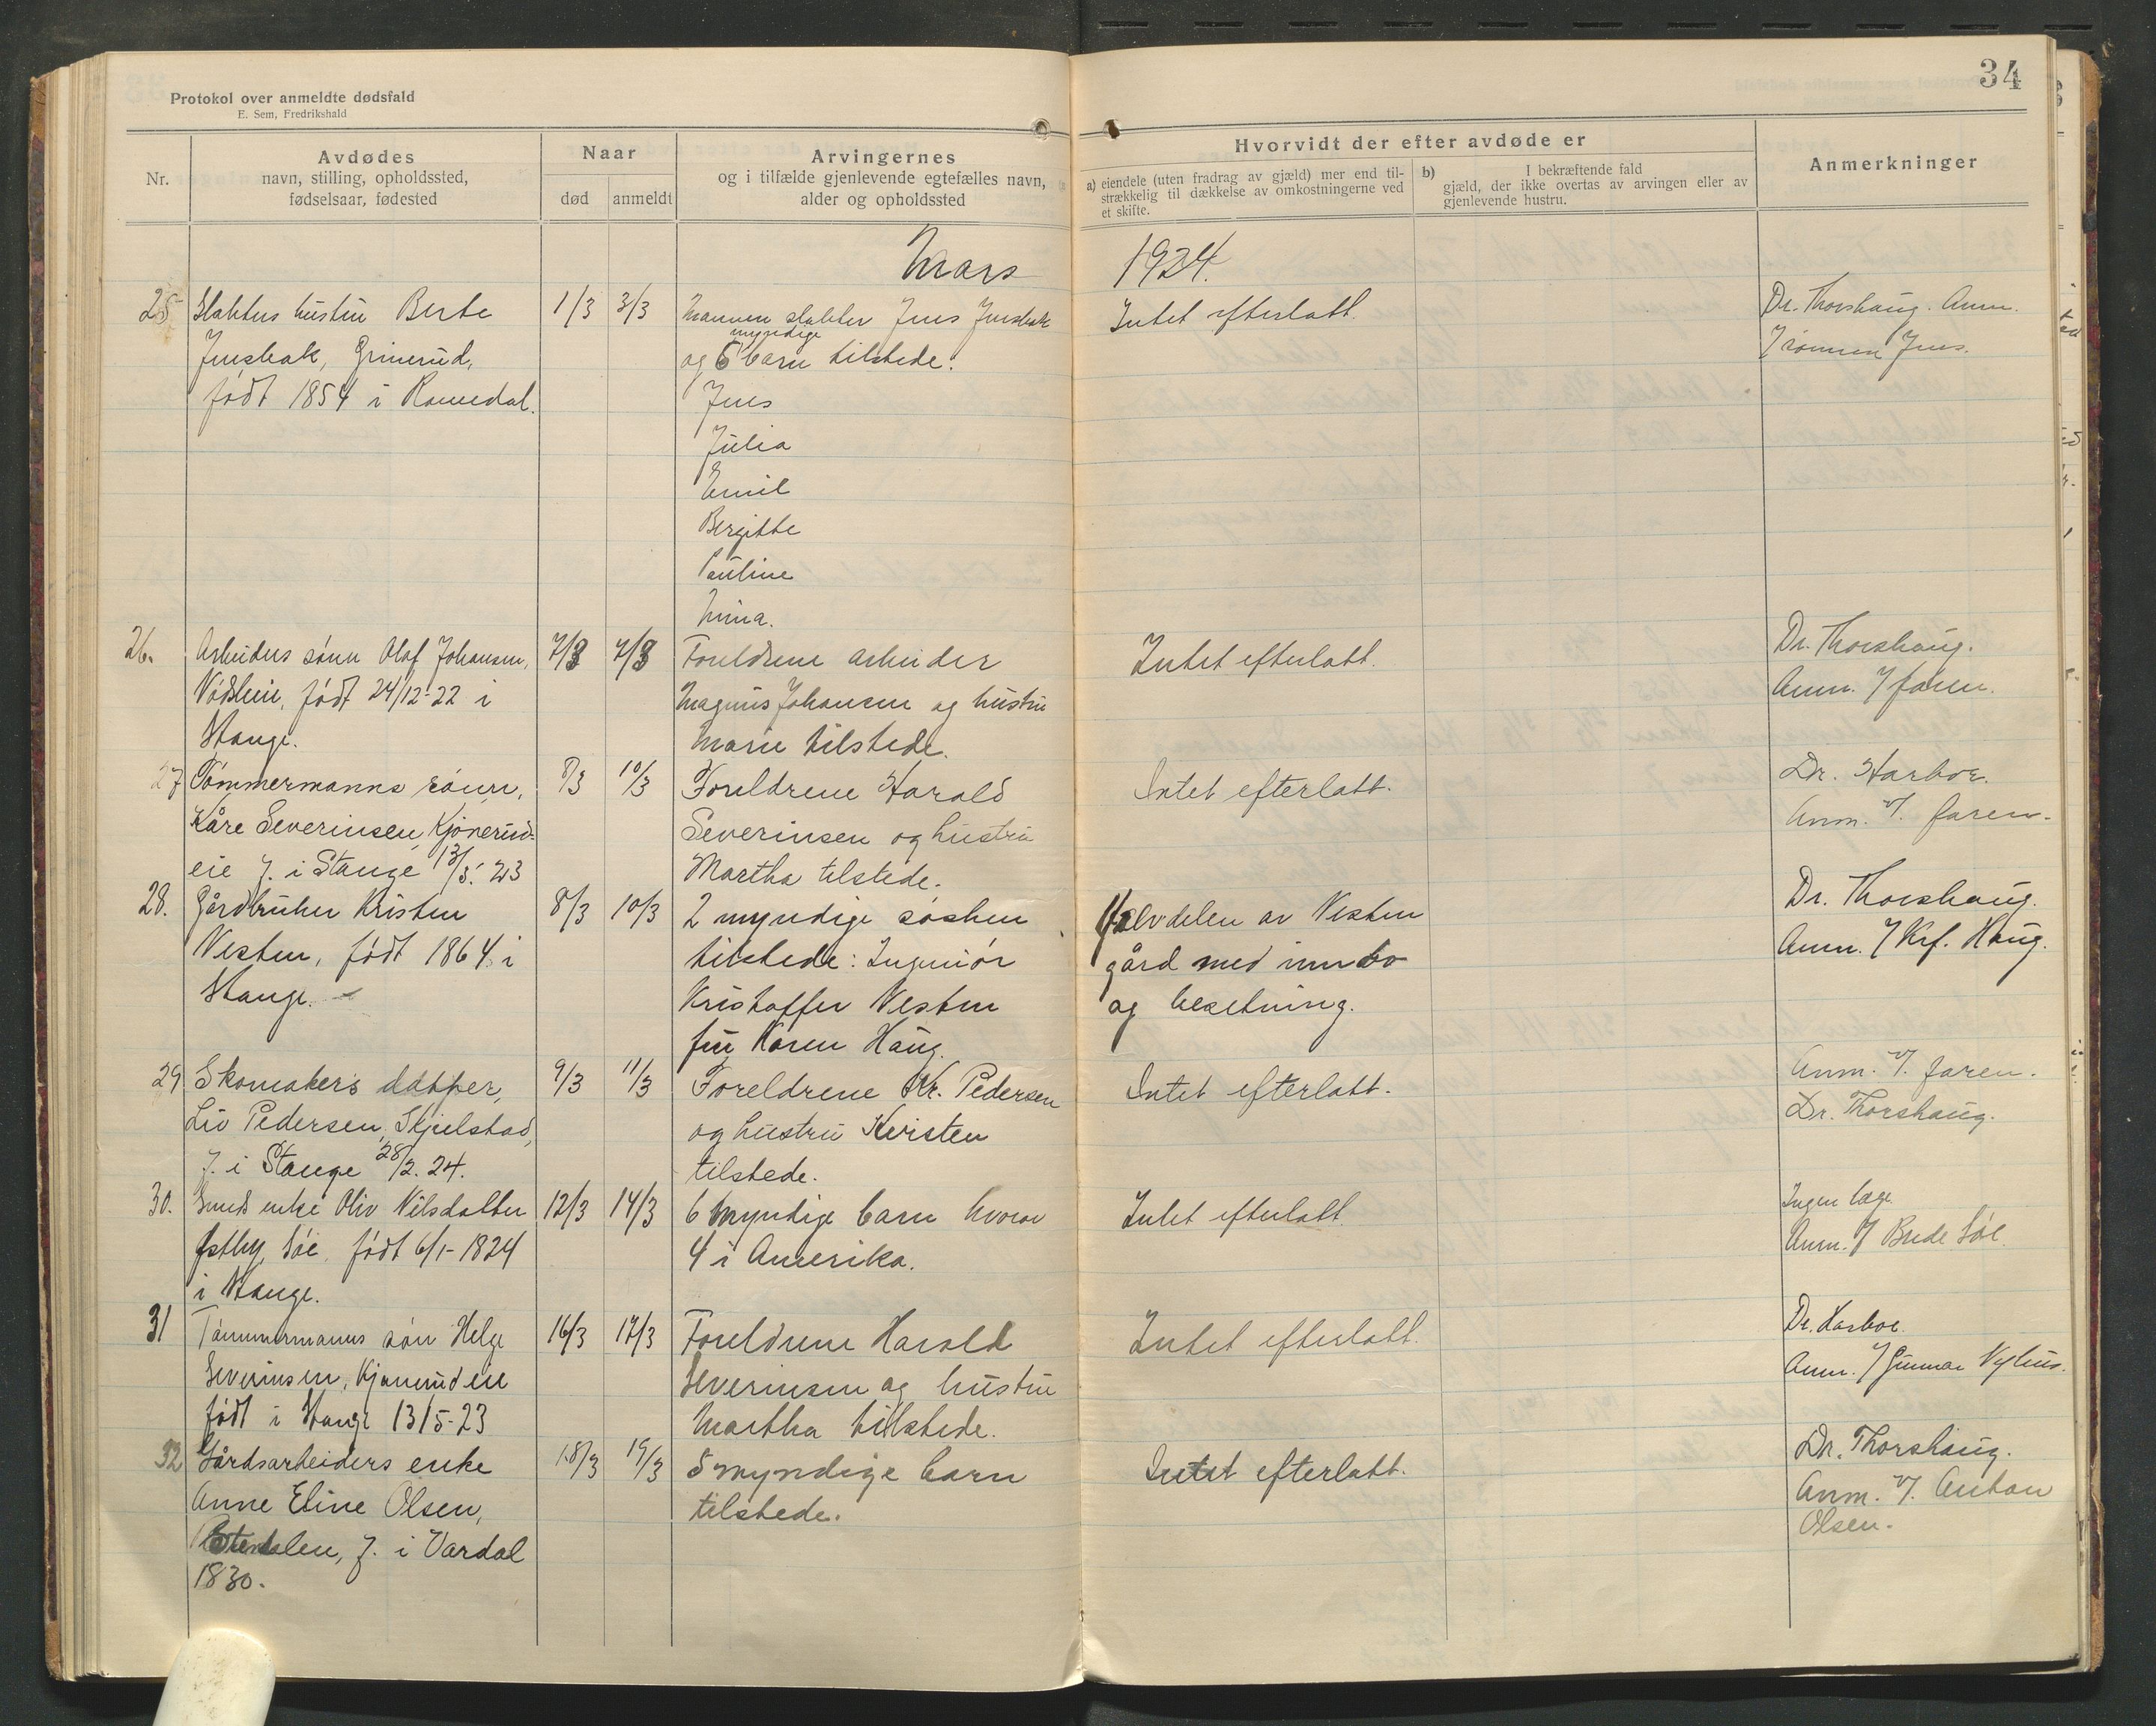 34
Protokol over anmeldte dødsfald
E. Sem, Fredrikshald
Nr.
Avdødes
navn, stilling, opholdssted,
fødselsaar, fødested
Naar
død
anmeldt
Arvingernes
og i tilfælde gjenlevende egtefælles navn,
alder og opholdssted
Hvorvidt der efter avdøde er
a) eiendele (uten fradrag av gjæld) mer end til-
strækkelig til dækkelse av omkostningerne ved
et skifte.
b) I bekræftende fald
gjæld, der ikke overtas av arvingen eller av
gjenlevende hustru.
Anmerkninger
Mars 1924.
25 Slakters hustru Berte 1/3 3/3 Mannen slakter Jens Jensbak Intet efterlatt. Dr. Thorshaug. Anm.
Jensbak, Grinerud, og 6 myndige barn tilstede: v/ sønnen Jens.
født 1854 i Romedal. Jens
Julia
Emil
Bergitte
Pauline
Mina.
26. Arbeiders sønn Olaf Johansen, 7/3 7/3 Foreldrene arbeider Intet efterlatt. Dr. Thorshaug.
født 24/12-22 i Magnus Johansen og hustru Anm. v/ faren.
Stange. Marie tilstede.
27 Tømmermanns sønn, 8/3 10/3 Foreldrene Harald Intet efterlatt. Dr. Harboe.
Kåre Severinsen, Kjonerud- Severinsen og hustru Anm. v/. faren.
eie f. i Stange 13/5. 23 Martha tilstede.
28. Gårdbruker Kristen 8/3 10/3 2 myndige søsken Halvdelen av Vesten Dr. Thorshaug.
Vesten, født 1864 i tilstede: Ingeniør gård med innbo Anm. v/ Krf. Haug.
Stange. Kristoffer Vesten og besetning.
fru Karen Haug.
29 Skomakers datter, 9/3 11/3 Foreldrene Kr. Pedersen Intet efterlatt. Anm. v/. faren.
Liv Pedersen, Skjelstad, og hustru Kristen Dr. Thorshaug.
f. i Stange 28/2. 24. tilstede.
30. Smeds enke Oliv Nilsdatter 12/3 14/3 6 myndige barn hvorav Intet efterlatt Ingen læge.
Østby, Søe, født 6/1-1824 4 i Amerika. Anm. v/ Søe.
i Stange.
31 Tømmermanns søn Helge 16/3 17/3 Foreldrene Harald Intet efterlatt. Dr. Harboe.
Severinsen, Kjonerudeie Severinsen og hustru Anm. v/ Gunnar Nyhus.
født i Stange 13/5-23 Martha tilstede.
32 Gårdsarbeiders enke 18/3 19/3 5 myndige barn Intet efterlatt. Dr. Thorshaug.
Anne Eline Olsen, tilstede. Anm. v/. Anton
f. i Vardal Olsen.
1830.